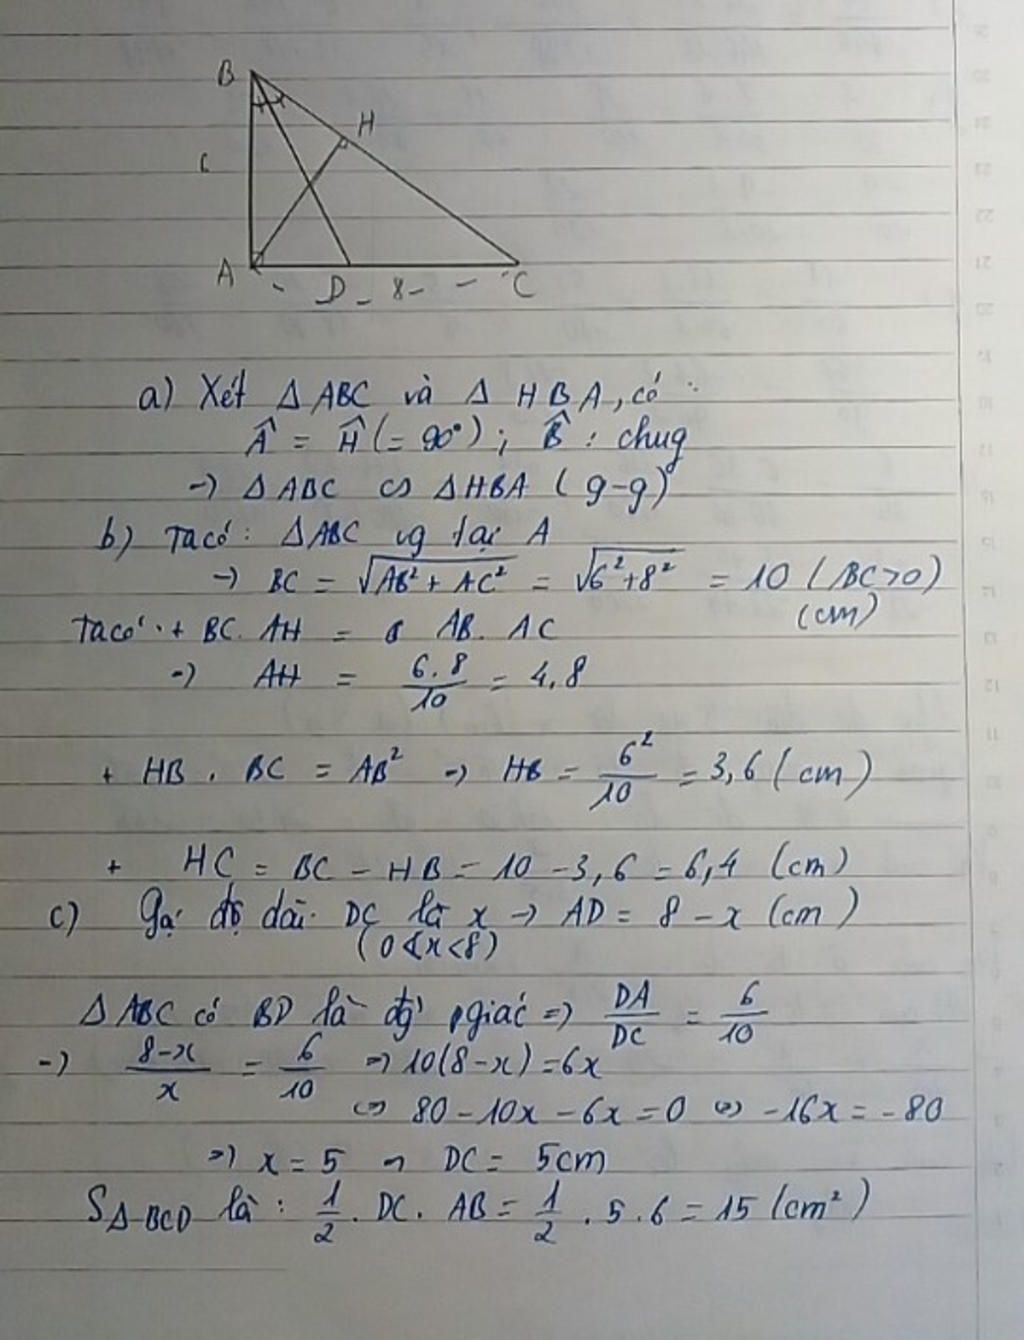 B
H
6
A
D
8
C
a) Xét Δ ABC và Δ HBA, có:
Â = Ĥ (= 90°); B̂ : chug
→ Δ ABC ∽ Δ HBA (g-g)
b) Ta có: ΔABC vg tại A
→ BC = √(AB² + AC²) = √(6² + 8²) = 10 (BC > 0)
(cm)
Ta có: + BC. AH = AB. AC
→ AH = 6.8/10 = 4,8
+ HB . BC = AB² → HB = 6²/10 = 3,6 (cm)
+ HC = BC - HB = 10 - 3,6 = 6,4 (cm)
c) Gọi độ dài DC là x → AD = 8 - x (cm)
(0 < x < 8)
Δ ABC có BD là đg` pgiác => DA/DC = 6/10
→ (8-x)/x = 6/10 => 10(8-x) = 6x
<=> 80 - 10x - 6x = 0 <=> -16x = -80
=> x = 5 → DC = 5cm
SΔ BCD là : 1/2 . DC . AB = 1/2 . 5 . 6 = 15 (cm²)